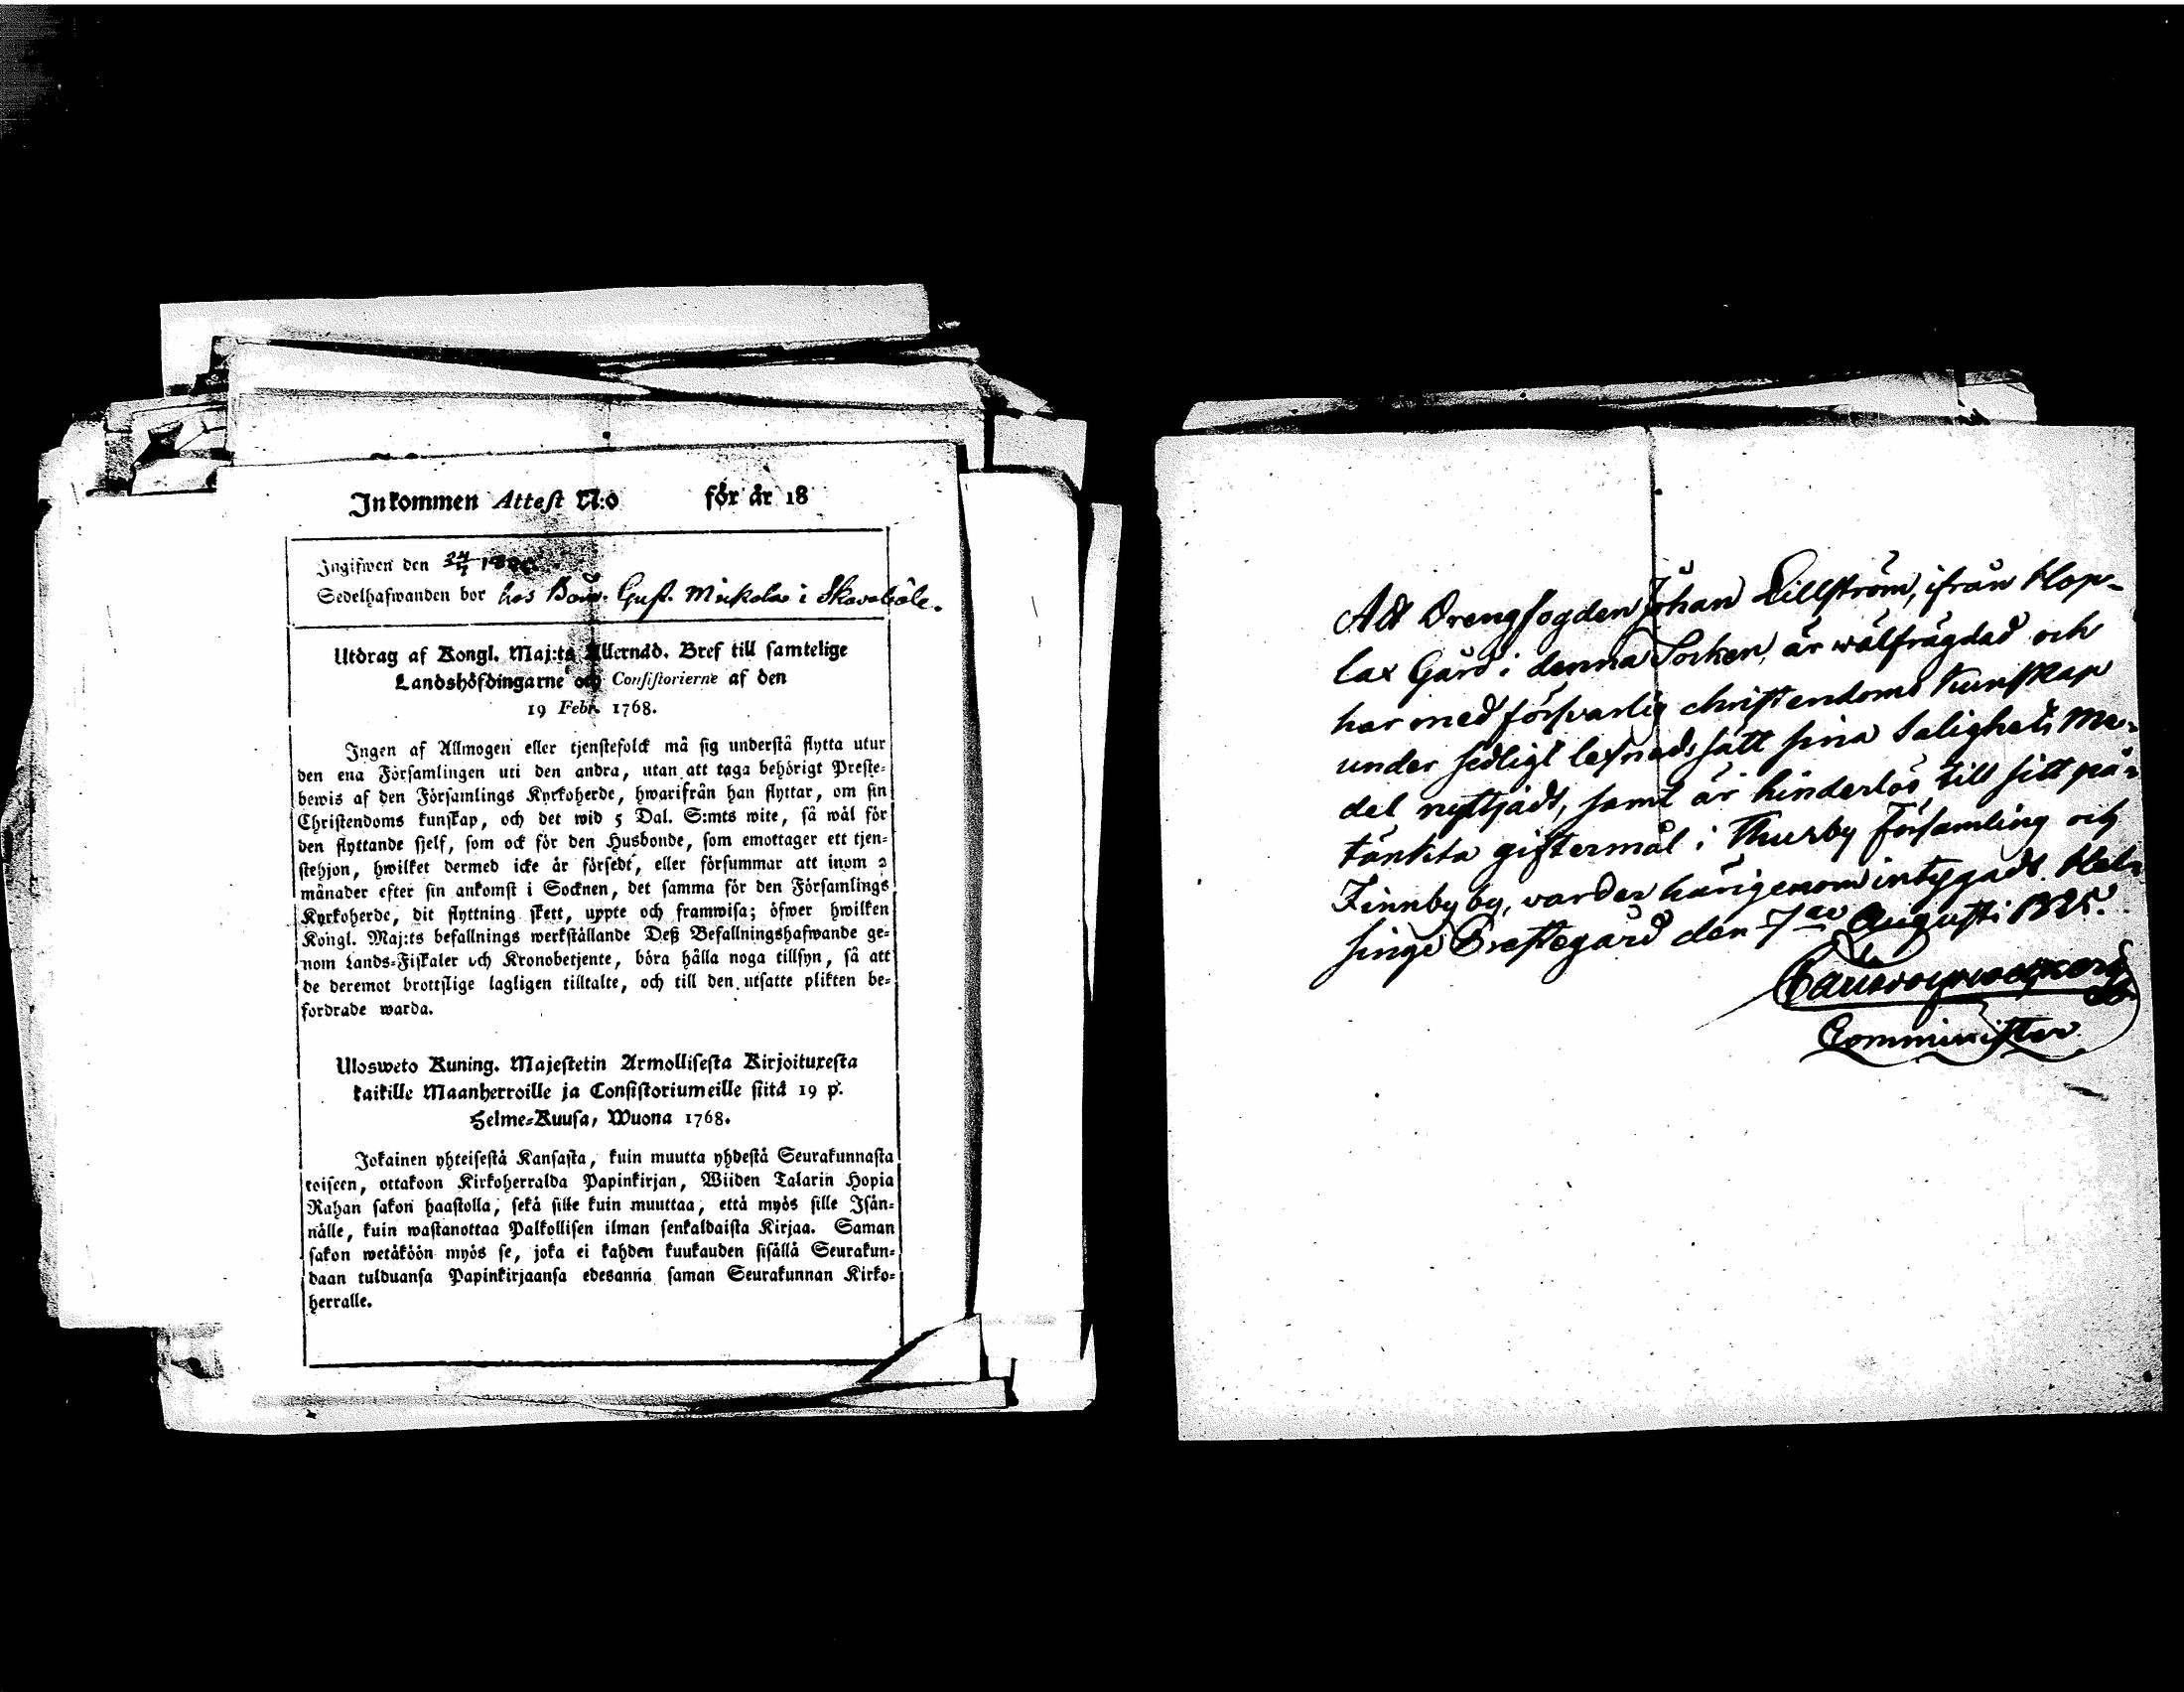 Inkommen Attest N:o för år 18
Ingifwen den 24/1
Sedelhafwanden bor hos Gust. Mickola i Skavaböle.
Utdrag af Kongl. Maj:ts Allernåd. Bref till samtelige
Landshöfdingarne och Consistorierne af den
19 Febr. 1768.
Ingen af Allmogen eller tjenstefolck må sig understå flytta utur
den ena Församlingen uti den andra, utan att taga behörigt Preste-
bewis af den Församlings Kyrkoherde, hwarifrån han flyttar, om sin
Christendoms kunskap, och det wid 5 Dal. S:mts wite, så wäl för
den flyttande sjelf, som ock för den Husbonde, som emottager ett tjen-
stehjon, hwilket dermed icke är försedt, eller försummar att inom 2
månader efter sin ankomst i Socknen, det samma för den Församlings
Kyrkoherde, dit flyttning skett, uppte och framwisa; öfwer hwilken
Kongl. Maj:ts befallnings werkställande Deß Befallningshafwande ge-
nom Lands-Fiskaler och Kronobetjente, böra hålla noga tillsyn, så att
de deremot brottslige lagligen tilltalte, och till den utsatte plikten be-
fordrade warda.
Ulosweto Kuning. Majestetin Armollisesta Kirjoituxesta
kaikille Maanherroille ja Consistoriumeille siitä 19 p.
Helme-Kuusa, Wuona 1768.
Jokainen yhteisestä Kansasta, kuin muutta yhdestä Seurakunnasta
toiseen, ottakoon Kirkoherralda Papinkirjan, Wiiden Talarin Hopia
Rahan sakon haastolla, sekä sille kuin muuttaa, että myös sille Isän-
nälle, kuin wastanottaa Palkollisen ilman senkaldaista Kirjaa. Saman
sakon wetäköön myös se, joka ei kahden kuukauden sisällä Seurakun-
daan tulduansa Papinkirjaansa edesanna saman Seurakunnan Kirko-
herralle.
Att Drengfogden Johan Lillström, ifrån Hop-
lax Gård i denna Socken, är wälfrägdad och
har med försvarlig christendoms kunskap
under sedligt lefnads sätt sina Salighets Me-
del nyttjadt, samt är hinderlös till sitt på-
tänkta giftermål i Thusby Församling och
Finnby by, varder härigenom intygadt. Hel-
singe Prestegård den 7de Augusti 1825.
Comminister